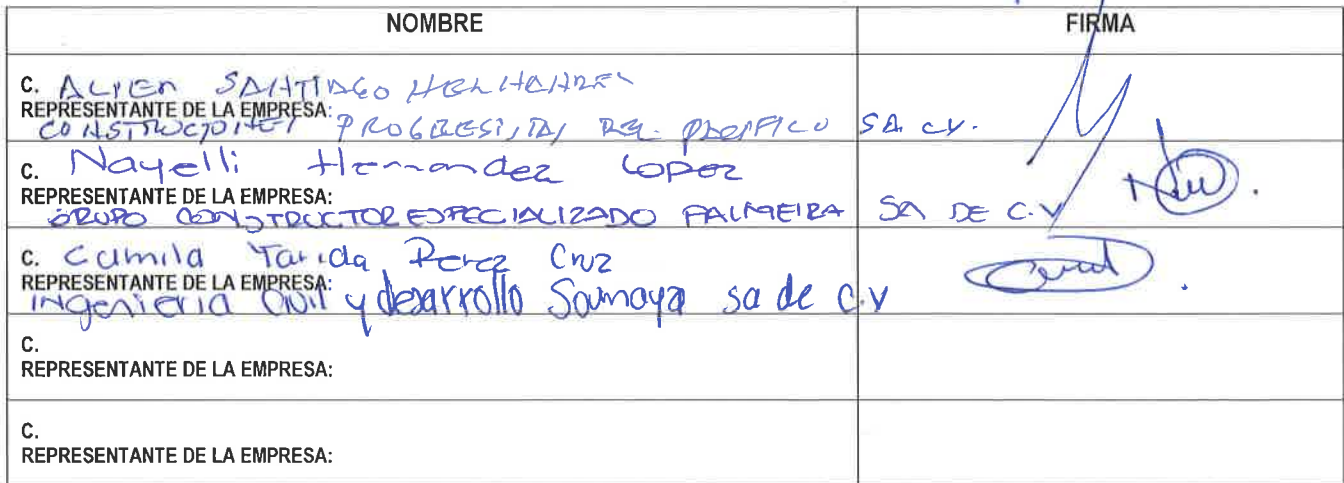 NOMBRE FIRMA
C. ALIEN SANTIAGO HERNANDEZ
REPRESENTANTE DE LA EMPRESA:
CONSTRUCTORES PROGRESISTAS DEL PACIFICO SA. CV.
C. Nayelli Hernandez Lopez
REPRESENTANTE DE LA EMPRESA:
GRUPO CONSTRUCTOR ESPECIALIZADO PALMEIRA SA DE C.V
C. Camila Yarida Perez Cruz
REPRESENTANTE DE LA EMPRESA:
INgenieria Civil y desarrollo Samaya sa de C.V
C.
REPRESENTANTE DE LA EMPRESA:
C.
REPRESENTANTE DE LA EMPRESA: